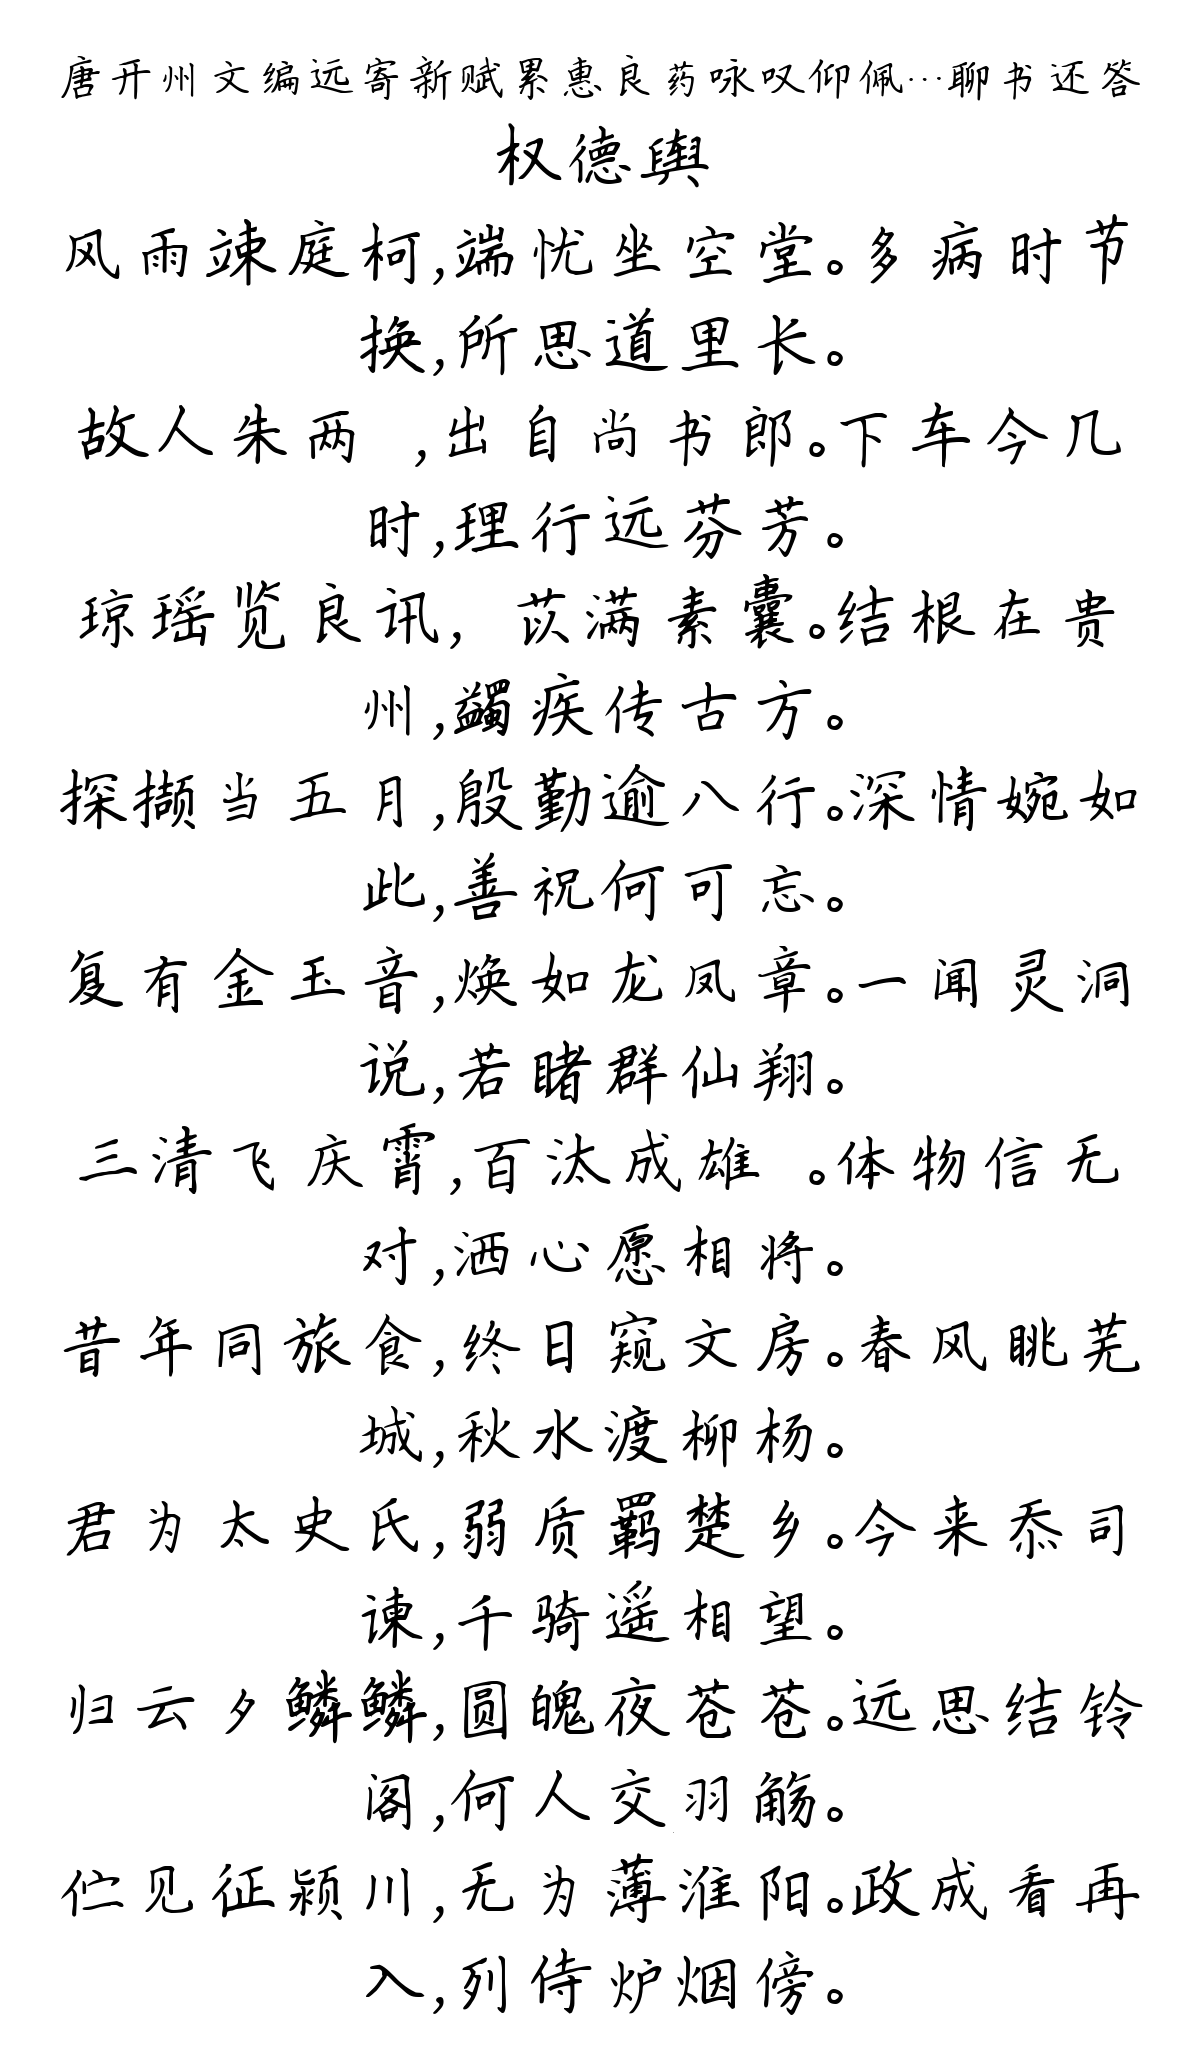 唐开州文编远寄新赋累惠良药咏叹仰佩…聊书还答
权德舆
风雨竦庭柯,端忧坐空堂。多病时节
换,所思道里长。
故人朱两 ,出自尚书郎。下车今几
时,理行远芬芳。
琼瑶览良讯, 苡满素囊。结根在贵
州,蠲疾传古方。
探撷当五月,殷勤逾八行。深情婉如
此,善祝何可忘。
复有金玉音,焕如龙凤章。一闻灵洞
说,若睹群仙翔。
三清飞庆霄,百汰成雄 。体物信无
对,洒心愿相将。
昔年同旅食,终日窥文房。春风眺芜
城,秋水渡柳杨。
君为太史氏,弱质羁楚乡。今来忝司
谏,千骑遥相望。
归云夕鳞鳞,圆魄夜苍苍。远思结铃
阁,何人交羽觞。
伫见征颍川,无为薄淮阳。政成看再
入,列侍炉烟傍。